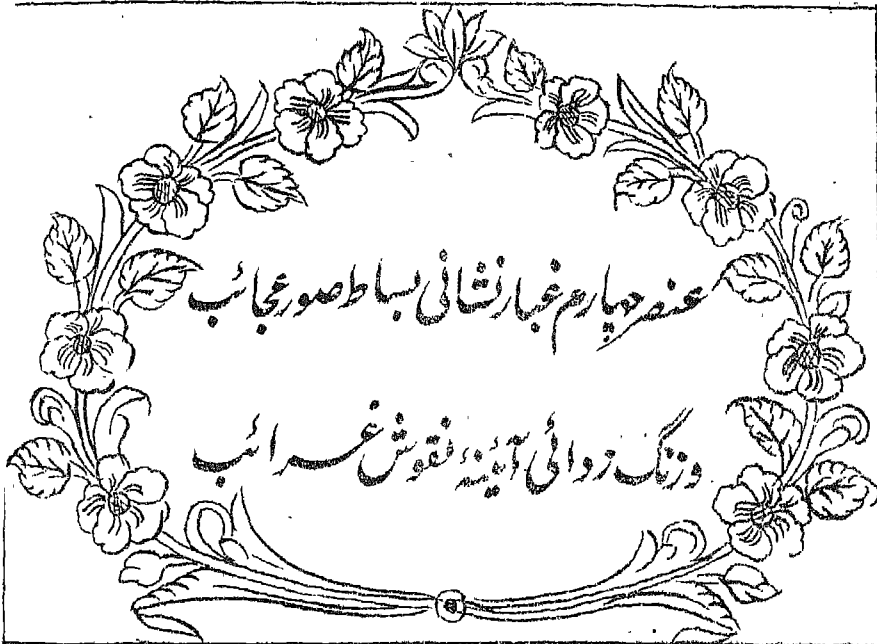 عنصر چہارم غبار نشانی بساط صور عجائب
و زنگ زدائی آئینۂ نقوش غرائب